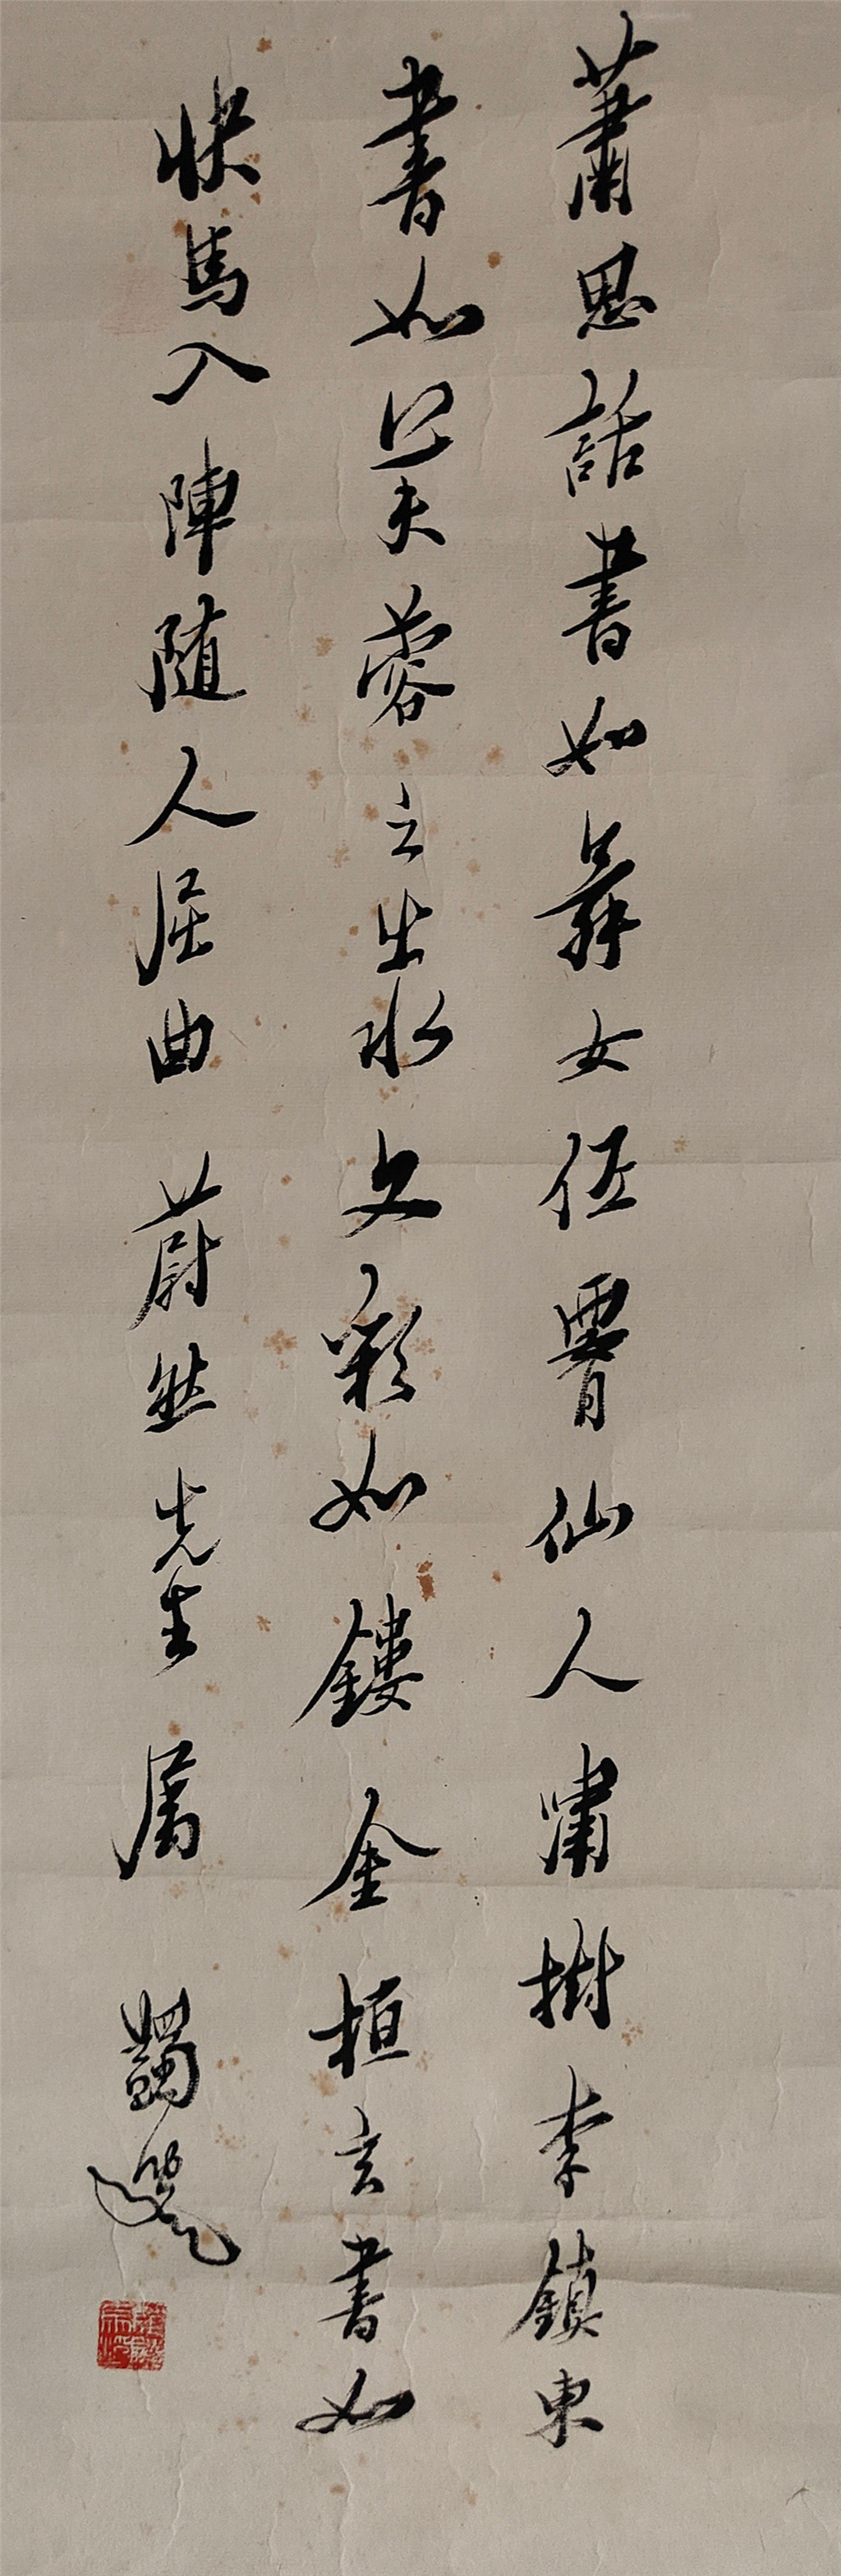 蕭思話書如舞女低腰仙人嘯樹李鎮東
書如芙蓉之出水文彩如鏤金桓玄書如
快馬入陣随人屈曲 蔚然先生屬 蠲叟